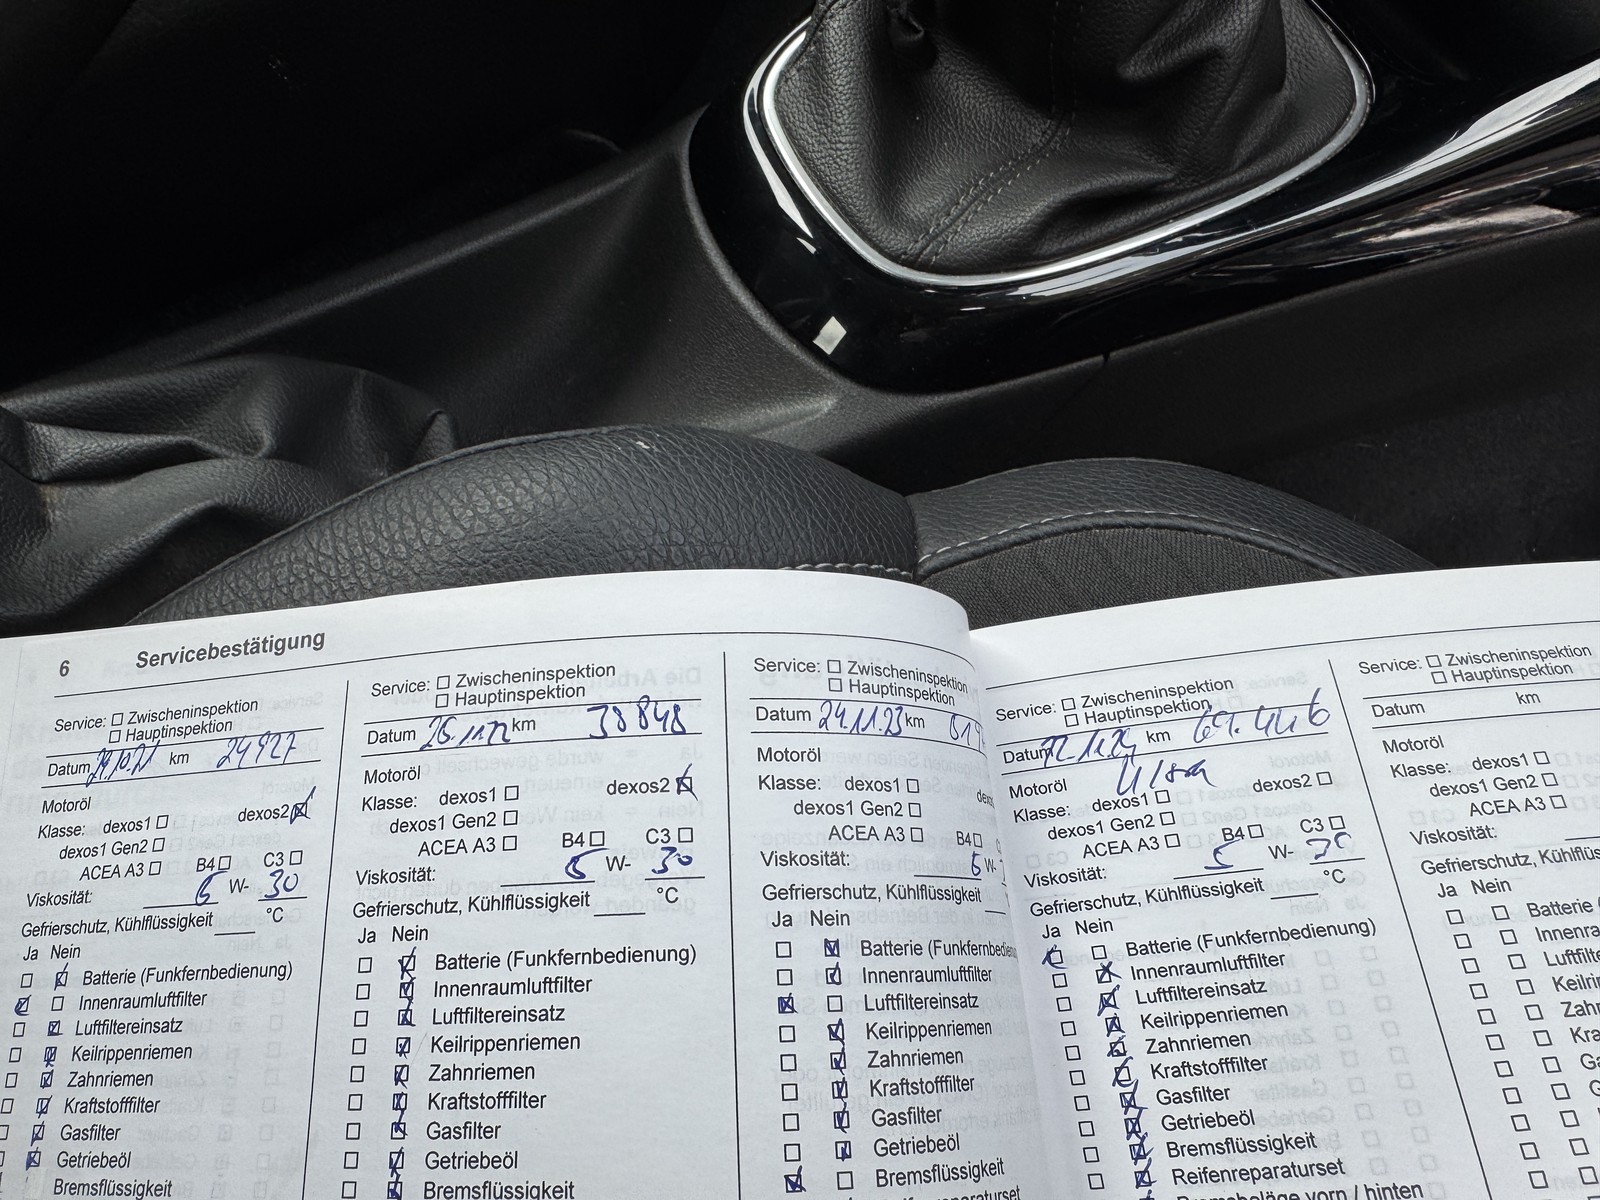 6 Servicebestätigung
Service: ☐ Zwischeninspektion
☐ Hauptinspektion
Datum km 24927
Motoröl
Klasse: dexos1 ☐ dexos2 ☒
dexos1 Gen2 ☐
ACEA A3 ☐ B4 ☐ C3 ☐
Viskosität: 5 W- 30
Gefrierschutz, Kühlflüssigkeit °C
Ja Nein
☐ ☒ Batterie (Funkfernbedienung)
☒ ☐ Innenraumluftfilter
☐ ☒ Luftfiltereinsatz
☐ ☒ Keilrippenriemen
☐ ☒ Zahnriemen
☐ ☒ Kraftstofffilter
☐ ☒ Gasfilter
☐ ☒ Getriebeöl
Bremsflüssigkeit
Service: ☐ Zwischeninspektion
☐ Hauptinspektion
Datum km 38848
Motoröl
Klasse: dexos1 ☐ dexos2 ☒
dexos1 Gen2 ☐
ACEA A3 ☐ B4 ☐ C3 ☐
Viskosität: 5 W- 30
Gefrierschutz, Kühlflüssigkeit °C
Ja Nein
☐ ☒ Batterie (Funkfernbedienung)
☐ ☒ Innenraumluftfilter
☐ ☒ Luftfiltereinsatz
☐ ☒ Keilrippenriemen
☐ ☒ Zahnriemen
☐ ☒ Kraftstofffilter
☐ ☒ Gasfilter
☐ ☒ Getriebeöl
☐ ☒ Bremsflüssigkeit
Service: ☐ Zwischeninspektion
☐ Hauptinspektion
Datum 24.11.23 km
Motoröl
Klasse: dexos1 ☐
dexos1 Gen2 ☐
ACEA A3 ☐ B4 ☐
Viskosität: 5 W-
Gefrierschutz, Kühlflüssigkeit
Ja Nein
☐ ☒ Batterie
☐ ☒ Innenraumluftfilter
☒ ☐ Luftfiltereinsatz
☐ ☒ Keilrippenriemen
☐ ☒ Zahnriemen
☐ ☒ Kraftstofffilter
☐ ☒ Gasfilter
☐ ☒ Getriebeöl
☒ ☐ Bremsflüssigkeit
Service: ☐ Zwischeninspektion
☐ Hauptinspektion
Datum km 69.446
Motoröl
Klasse: dexos1 ☐ dexos2 ☐
dexos1 Gen2 ☐
ACEA A3 ☐ B4 ☐ C3 ☐
Viskosität: 5 W-
Gefrierschutz, Kühlflüssigkeit °C
Ja Nein
☒ ☐ Batterie (Funkfernbedienung)
☐ ☒ Innenraumluftfilter
☐ ☒ Luftfiltereinsatz
☐ ☒ Keilrippenriemen
☐ ☒ Zahnriemen
☐ ☒ Kraftstofffilter
☐ ☒ Gasfilter
☐ ☒ Getriebeöl
☐ ☒ Bremsflüssigkeit
☐ ☒ Reifenreparaturset
vorn / hinten
Service: ☐ Zwischeninspektion
☐ Hauptinspektion
Datum km
Motoröl
Klasse: dexos1 ☐
dexos1 Gen2 ☐
ACEA A3 ☐
Viskosität:
Gefrierschutz,
Ja Nein
☐ ☐ Batterie